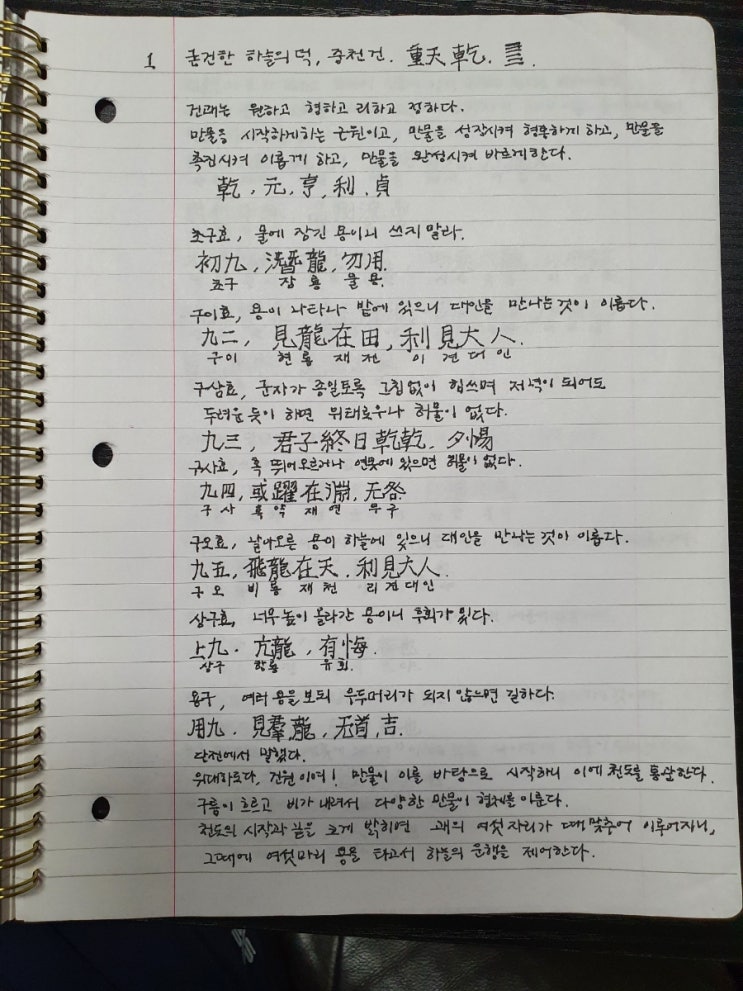 1 굳건한 하늘의 덕, 중천건. 重天乾. ䷀.
건괘는 원하고 형하고 리하고 정하다.
만물을 시작하게하는 근원이고, 만물을 성장시켜 형통하게 하고, 만물을
촉진시켜 이롭게 하고, 만물을 완성시켜 바르게한다.
乾, 元, 亨, 利, 貞
초구효, 물에 잠긴 용이니 쓰지말라.
初九, 潛龍, 勿用.
초구 잠룡 물용
구이효, 용이 나타나 밭에 있으니 대인을 만나는것이 이롭다.
九二, 見龍在田, 利見大人.
구이 현룡재전 이견대인
구삼효, 군자가 종일토록 그침없이 힘쓰며 저녁이 되어도
두려운 듯이 하면 위태로우나 허물이 없다.
九三, 君子終日乾乾, 夕惕
구사효, 혹 뛰어오르거나 연못에있으면 허물이 없다.
九四, 或躍在淵, 无咎
구사 혹약재연 무구
구오효, 날아오른 용이 하늘에 있으니 대인을 만나는것이 이롭다.
九五, 飛龍在天, 利見大人.
구오 비룡재천 리견대인
상구효, 너무높이 올라간 용이니 후회가 있다.
上九. 亢龍, 有悔.
상구 항룡 유회.
용구, 여러 용을 보되 우두머리가 되지 않으면 길하다.
用九. 見羣龍, 无首, 吉.
단전에서 말했다.
위대하도다, 건원이여! 만물이 이를 바탕으로 시작하니 이에 천도를 통솔한다.
구름이 흐르고 비가 내려서 다양한 만물이 형체를 이룬다.
천도의 시작과 끝을 크게 밝히면 괘의 여섯 자리가 때맞추어 이루어지니,
그때에 여섯마리 용을 타고서 하늘의 운행을 제어한다.